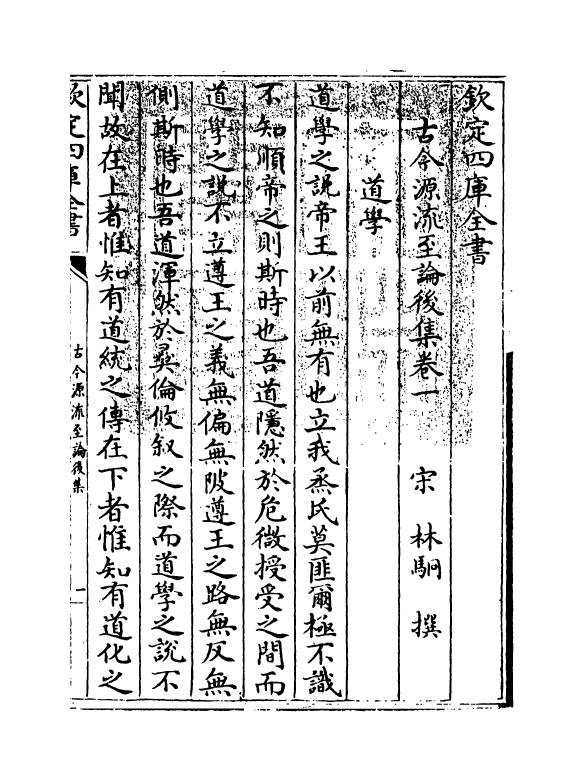 欽定四庫全書
古今源流至論後集卷一
宋 林駉 撰
道學
道學之説帝王以前無有也立我烝民莫匪爾極不識
不知順帝之則斯時也吾道隱然於危微授受之間而
道學之説不立遵王之義無偏無陂遵王之路無反無
側斯時也吾道渾然於彞倫攸叙之際而道學之説不
聞故在上者惟知有道統之傳在下者惟知有道化之
欽定四庫全書
古今源流至論後集
一